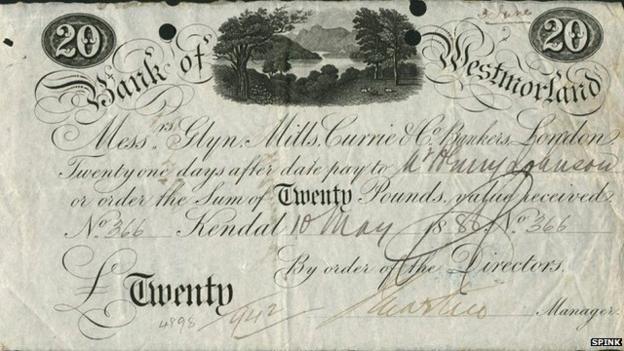 20 20
3 June
Bank of Westmorland
Mess.rs Glyn, Mills, Currie & Co. Bankers, London.
Twenty one days after date pay to Mr Henry Johnson
or order the Sum of Twenty Pounds, value received.
No. 366 Kendal 10 May 188 No. 366
By order of the Directors.
£ Twenty
4898 942 Manager.
SPINK